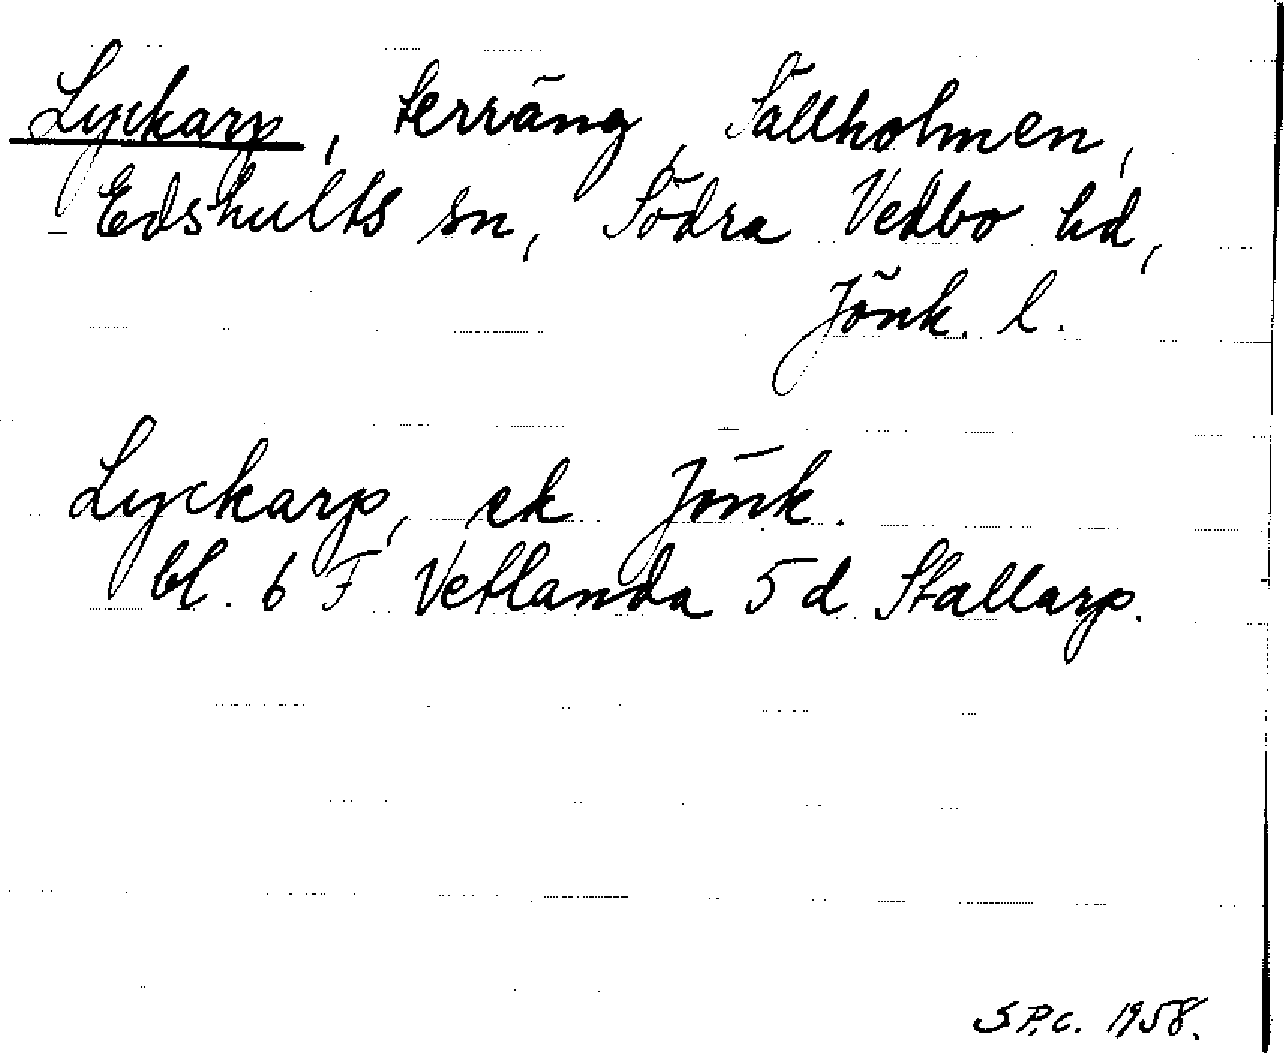 Lyckarp, terräng, Sällholmen,
Edshults sn, Södra Vedbo hd,
Jönk. l.
Lyckarp, ek Jönk.
bl. 6 F Vetlanda 5 d Stallarp.
S.P.C. 1958.